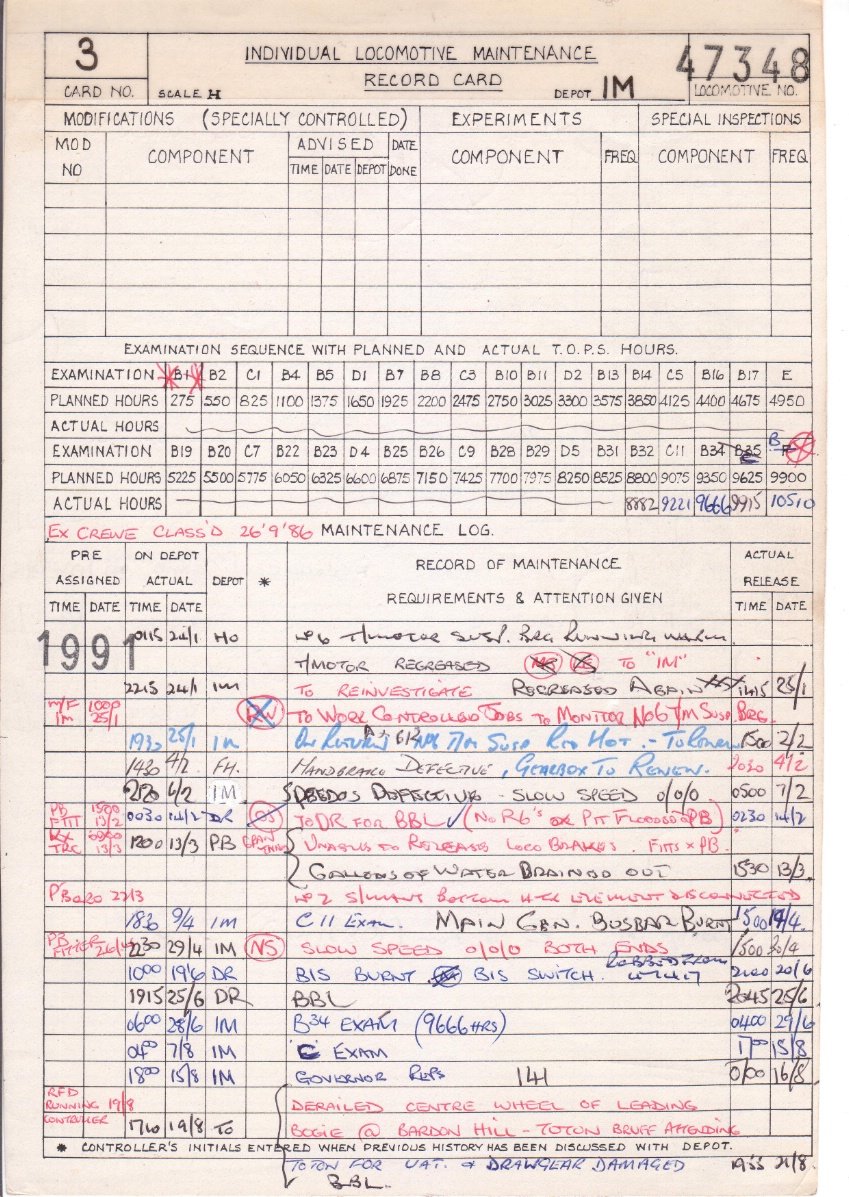 3 INDIVIDUAL LOCOMOTIVE MAINTENANCE 47348
RECORD CARD
CARD NO. SCALE H DEPOT IM LOCOMOTIVE NO.
MODIFICATIONS (SPECIALLY CONTROLLED) EXPERIMENTS SPECIAL INSPECTIONS
MOD NO COMPONENT ADVISED DATE DONE COMPONENT FREQ COMPONENT FREQ
TIME DATE DEPOT
EXAMINATION SEQUENCE WITH PLANNED AND ACTUAL T.O.P.S. HOURS.
EXAMINATION B1 B2 C1 B4 B5 D1 B7 B8 C3 B10 B11 D2 B13 B14 C5 B16 B17 E
PLANNED HOURS 275 550 825 1100 1375 1650 1925 2200 2475 2750 3025 3300 3575 3850 4125 4400 4675 4950
ACTUAL HOURS
EXAMINATION B19 B20 C7 B22 B23 D4 B25 B26 C9 B28 B29 D5 B31 B32 C11 B34 B35 C B F
PLANNED HOURS 5225 5500 5775 6050 6325 6600 6875 7150 7425 7700 7975 8250 8525 8800 9075 9350 9625 9900
ACTUAL HOURS 8882 9221 9666 9915 10510
EX CREWE CLASS'D 26'9'86 MAINTENANCE LOG.
PRE ASSIGNED ON DEPOT ACTUAL DEPOT * RECORD OF MAINTENANCE REQUIREMENTS & ATTENTION GIVEN ACTUAL RELEASE
TIME DATE TIME DATE TIME DATE
1991 0115 24/1 HO Nº6 T/MOTOR SUSP. BRG RUNNING WARM
T/MOTOR REGREASED TO "IM"
2215 24/1 IM TO REINVESTIGATE REGREASED AGAIN 1415 25/1
M/F 100P IM 25/1 TO WORK CONTROLLED JOBS TO MONITOR NO6 T/M SUSP. BRG.
1930 25/1 IM ON RETURN Nº6 T/M SUSP RED HOT. - TO RENEW 1500 2/2
1430 4/2 FH. HANDBRAKE DEFECTIVE, GEARBOX TO RENEW. 2030 4/2
2120 6/2 IM SPEEDOS DEFECTIVE - SLOW SPEED O/O/O 0500 7/2
PB FITT 1500 13/2 0030 14/2 DR TO DR FOR BBL (NO R6'S OR PIT FLOODED @ PB) 0230 14/2
KX TRC 0900 13/3 1200 13/3 PB UNABLE TO RELEASE LOCO BRAKES. FITTS X PB.
GALLONS OF WATER DRAINED OUT 1530 13/3
P'BORO 22/3 Nº2 S/MANS BOTTOM HTR ELEMENT DISCONNECTED
1830 9/4 IM C11 EXAM. MAIN GEN. BUSBAR BURNT 1500 19/4.
PB FITTER 26/4 2230 29/4 IM NS SLOW SPEED O/O/O BOTH ENDS 1500 30/4
1000 19/6 DR BIS BURNT BIS SWITCH. ROBBED FROM 47417 2100 20/6
1915 25/6 DR BBL 2045 25/6
0600 28/6 IM B34 EXAM (9666 HRS) 0400 29/6
0400 7/8 IM C EXAM 1700 15/8
1800 15/8 IM GOVERNOR REPS 141 0/00 16/8
RFD RUNNING 19/8 CONTROLLER DERAILED CENTRE WHEEL OF LEADING
1710 19/8 TO BOGIE @ BARDON HILL - TOTON BRUFF ATTENDING
* CONTROLLER'S INITIALS ENTERED WHEN PREVIOUS HISTORY HAS BEEN DISCUSSED WITH DEPOT.
TOTON FOR UAT. & DRAWGEAR DAMAGED 1955 21/8
BBL.